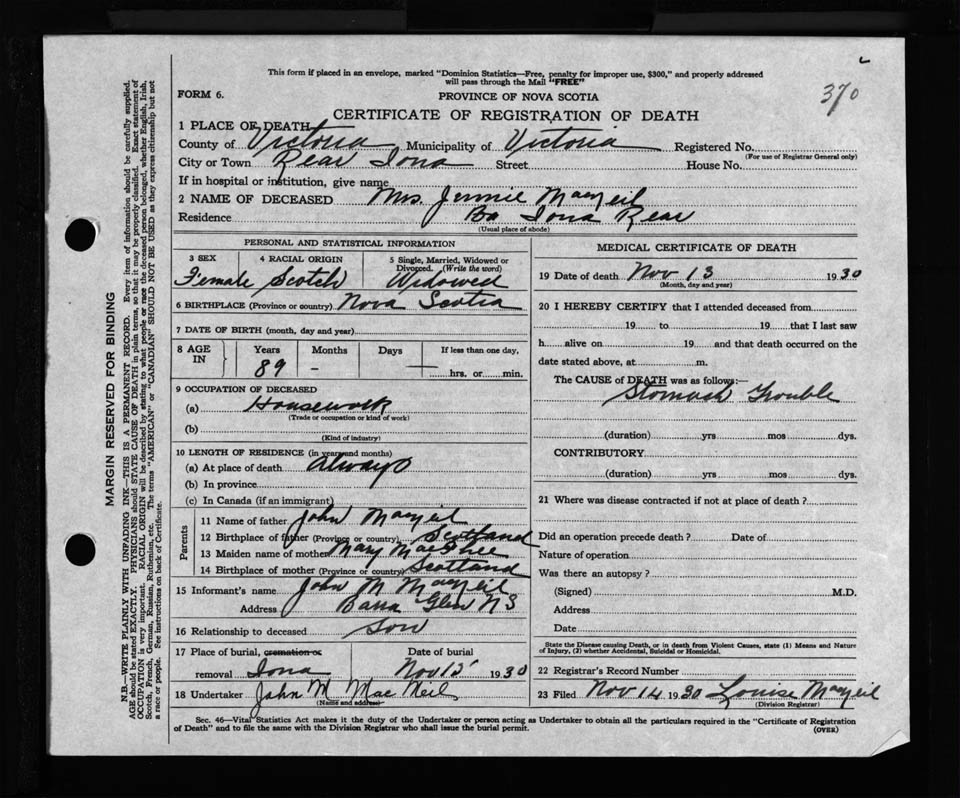 This form if placed in an envelope, marked "Dominion Statistics—Free, penalty for improper use, $300," and properly addressed
will pass through the Mail "FREE"
370
FORM 6.
PROVINCE OF NOVA SCOTIA
CERTIFICATE OF REGISTRATION OF DEATH
1 PLACE OF DEATH
County of Victoria Municipality of Victoria Registered No.
(For use of Registrar General only)
City or Town Rear Iona Street House No.
If in hospital or institution, give name
2 NAME OF DECEASED Mrs. Jennie MacNeil
Residence Iona Rear
(Usual place of abode)
PERSONAL AND STATISTICAL INFORMATION
3 SEX 4 RACIAL ORIGIN 5 Single, Married, Widowed or
Divorced. (Write the word)
Female Scotch Widowed
6 BIRTHPLACE (Province or country) Nova Scotia
7 DATE OF BIRTH (month, day and year)
8 AGE IN Years Months Days If less than one day,
89 - — hrs. or min.
9 OCCUPATION OF DECEASED
(a) Housework
(Trade or occupation or kind of work)
(b)
(Kind of industry)
10 LENGTH OF RESIDENCE (in years and months)
(a) At place of death Always
(b) In province
(c) In Canada (if an immigrant)
Parents
11 Name of father John MacNeil
12 Birthplace of father (Province or country) Scotland
13 Maiden name of mother Mary MacPhee
14 Birthplace of mother (Province or country) Scotland
15 Informant's name John M MacNeil
Address Barra Glen NS
16 Relationship to deceased Son
17 Place of burial, cremation or Date of burial
removal Iona Nov 15 1930
18 Undertaker John M MacNeil
(Name and address)
MEDICAL CERTIFICATE OF DEATH
19 Date of death Nov 13 1930
(Month, day and year)
20 I HEREBY CERTIFY that I attended deceased from
19 to 19 that I last saw
h alive on 19 and that death occurred on the
date stated above, at m.
The CAUSE of DEATH was as follows:—
Stomach Trouble
(duration) yrs mos dys.
CONTRIBUTORY
(duration) yrs mos dys.
21 Where was disease contracted if not at place of death?
Did an operation precede death? Date of
Nature of operation
Was there an autopsy?
(Signed) M.D.
Address
Date
State the Disease causing Death, or in death from Violent Causes, state (1) Means and Nature
of Injury, (2) whether Accidental, Suicidal or Homicidal.
22 Registrar's Record Number
23 Filed Nov 14 1930 Louise MacNeil
(Division Registrar)
Sec. 46—Vital Statistics Act makes it the duty of the Undertaker or person acting as Undertaker to obtain all the particulars required in the "Certificate of Registration
of Death" and to file the same with the Division Registrar who shall issue the burial permit.
(OVER)
MARGIN RESERVED FOR BINDING
N.B.—WRITE PLAINLY WITH UNFADING INK—THIS IS A PERMANENT RECORD. Every item of information should be carefully supplied.
AGE should be stated EXACTLY. PHYSICIANS should STATE CAUSE OF DEATH in plain terms, so that it may be properly classified. Exact statement of
OCCUPATION is very important. RACIAL ORIGIN will be described by stating to what people or race the deceased person belonged, whether English, Irish,
Scotch, French, German, Russian, Ruthenian, etc. The terms "AMERICAN" or "CANADIAN" SHOULD NOT BE USED as they express citizenship but not
a race or people. See instructions on back of Certificate.